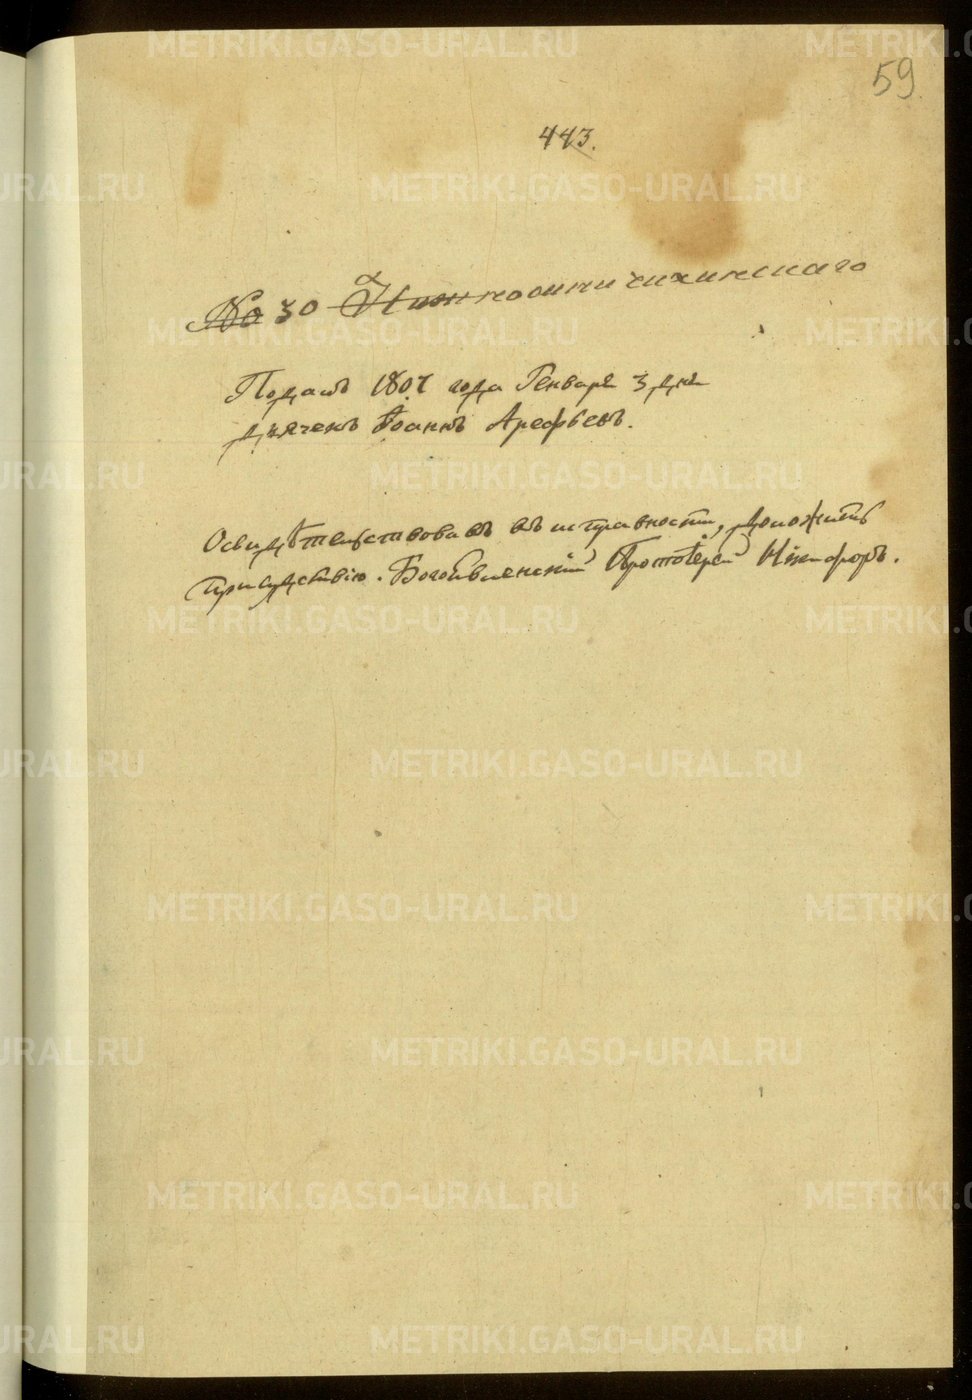 59
443.
№ 30
Подалъ 1807 года Генваря 3 дня
дьячекъ Іоаннъ Арефьевъ.
Освидѣтельствовавъ въ исправности, доложить
присудствію. Богоявленскій Протоіерей Никифоръ.
METRIKI.GASO-URAL.RU